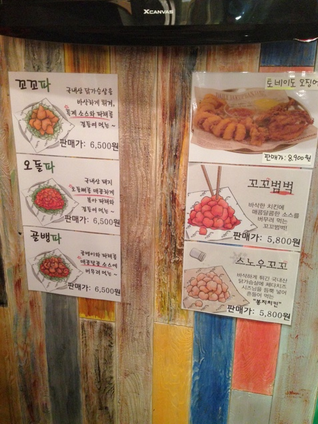 XCANVAS
꼬꼬파
국내산 닭가슴살을
바삭하게 튀겨,
소스와 파채를
곁들여 먹는~
판매가: 6,500원
오돌파
국내산 돼지
오돌뼈를 매콤하게
볶아 파채와
곁들여 먹는~
판매가: 6,500원
골뱅파
골뱅이와 파채를
매콤달콤 소스에
버무려 먹는
판매가: 6,500원
토네이도 오징어
판매가: 8,900원
꼬꼬범벅
바삭한 치킨에
매콤달콤한 소스를
버무려 먹는
꼬꼬범벅!
판매가: 5,800원
스노우꼬꼬
바삭하게 튀긴 국내산
닭가슴살에 체다치즈
시즈닝을 듬뿍 넣어
흔들어 먹는
"봉지치킨"
판매가: 5,800원